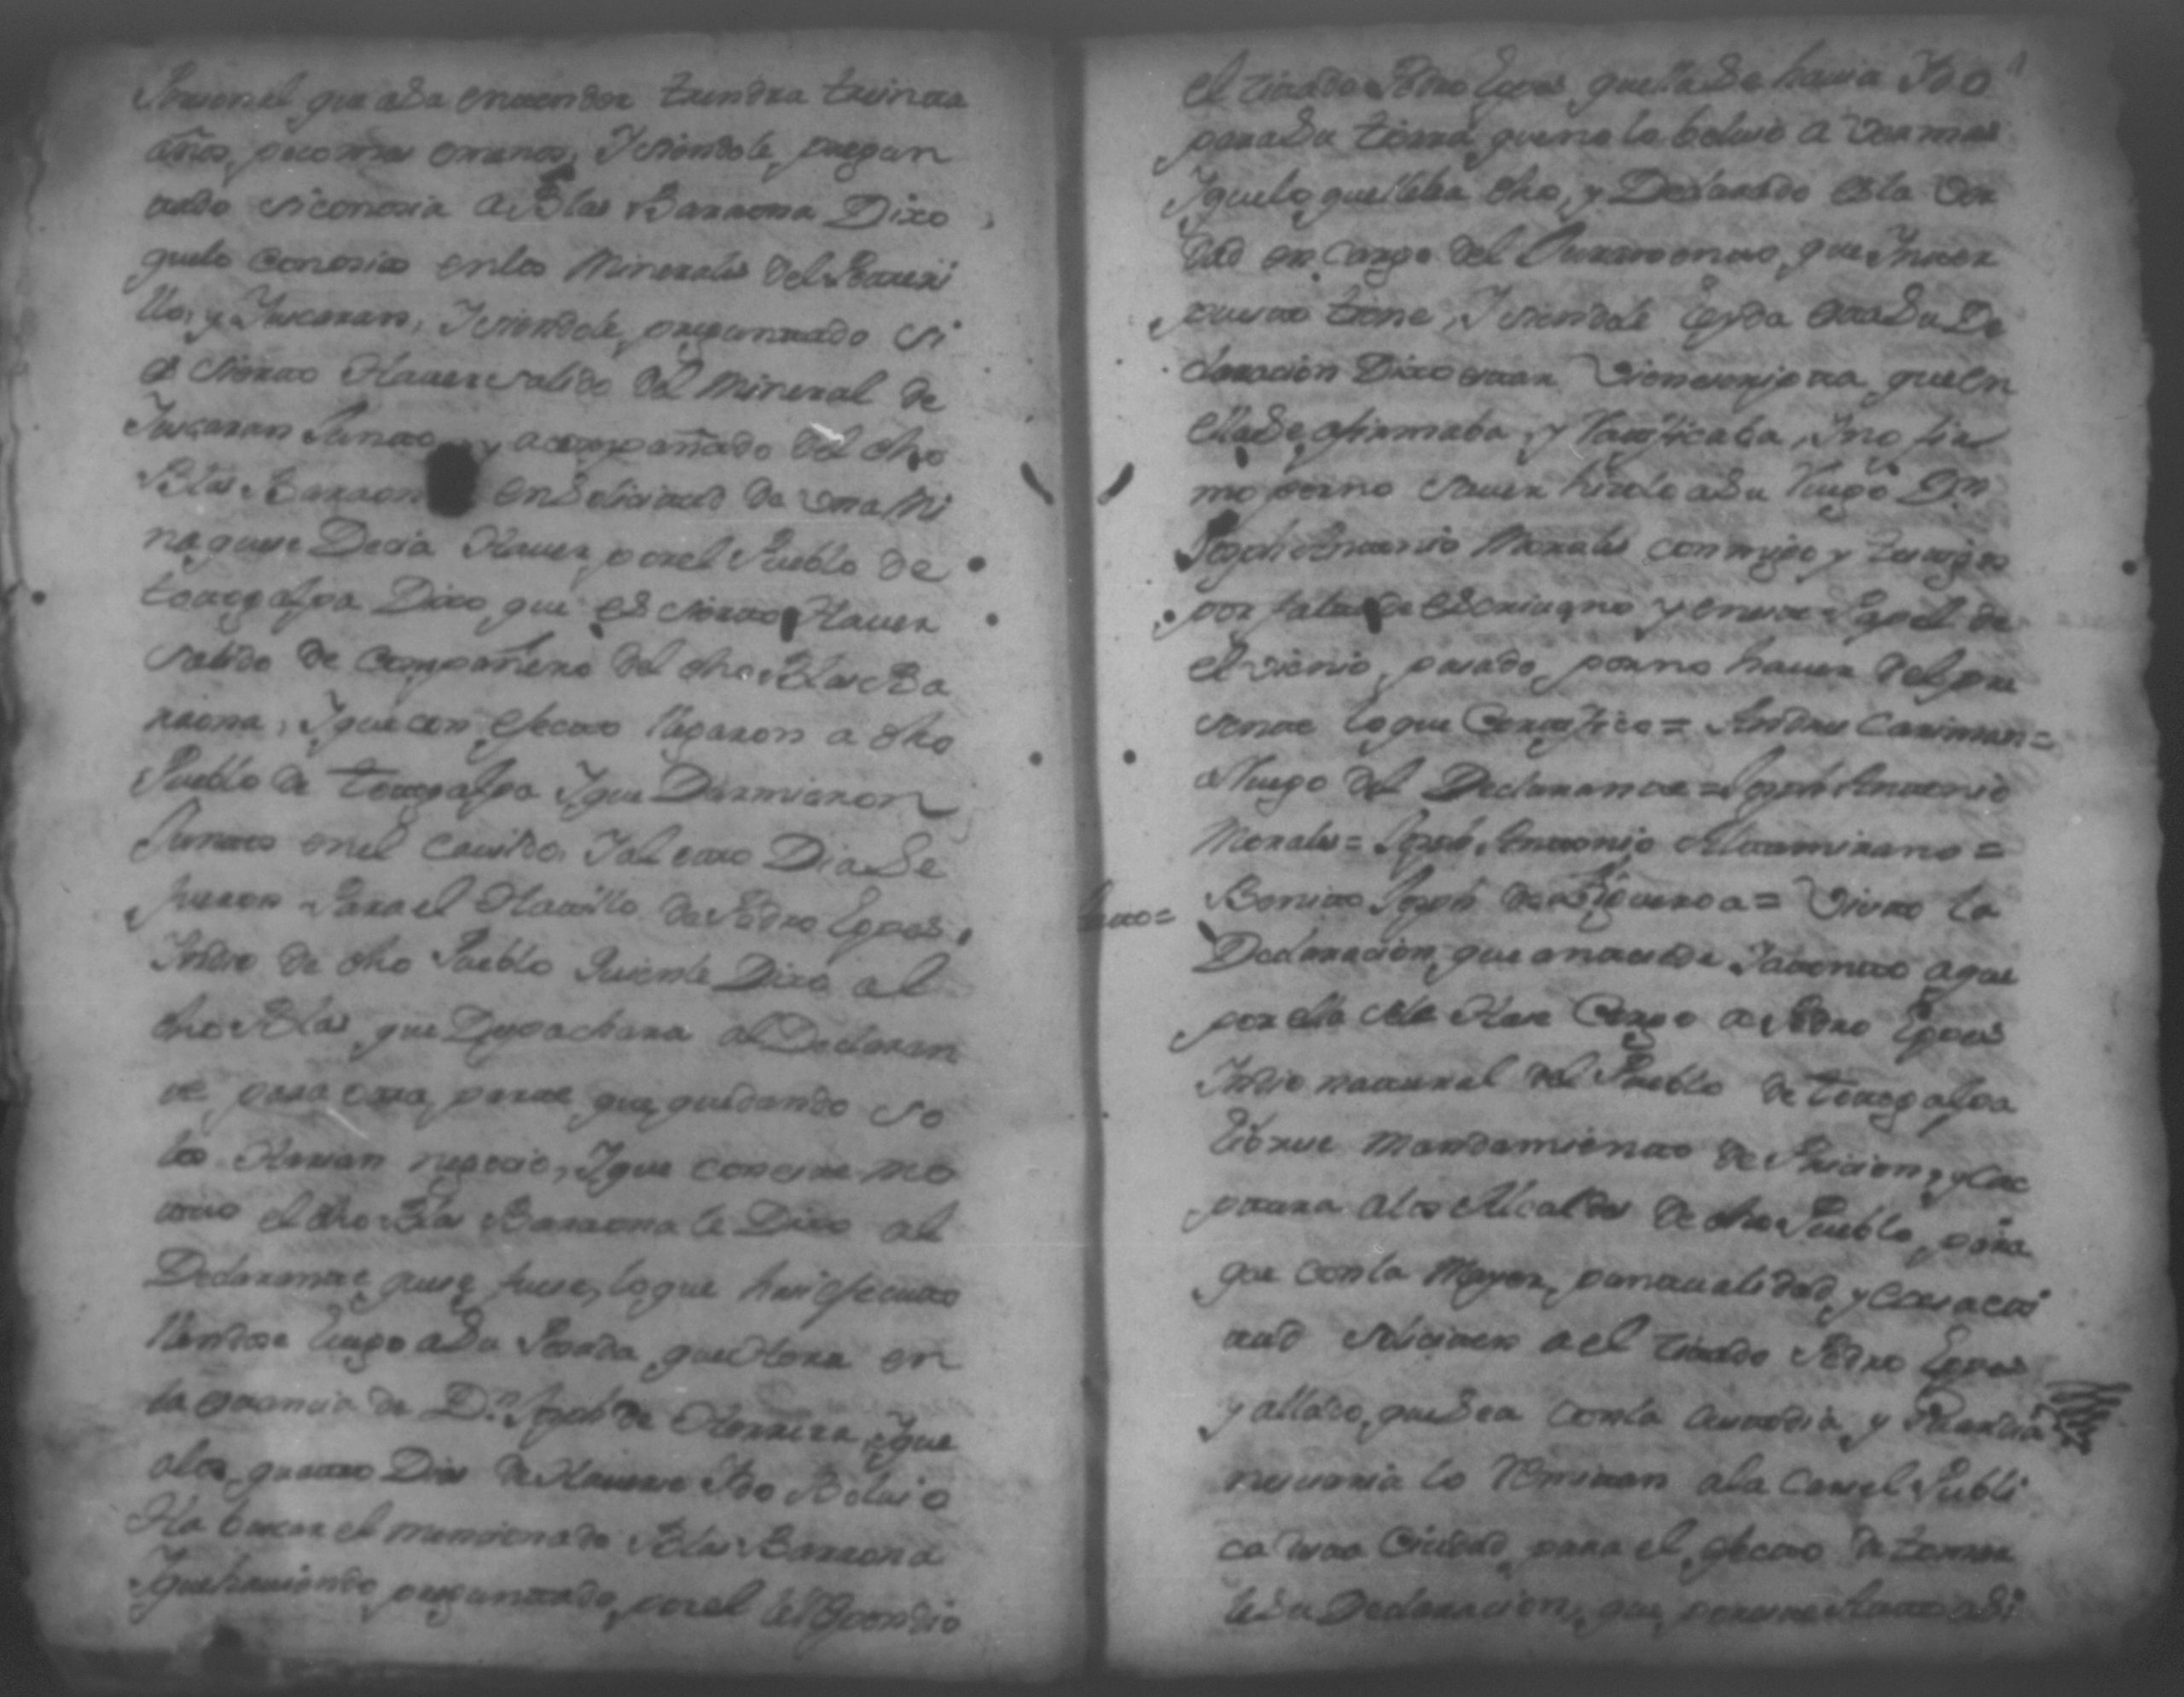 que a Su entender tendra treinta
años, poco mas o menos, Y siendole pregun
tado si conosia a Blas Barraona Dixo
que lo conosio en los Minerales del Potreri
llo, y Yuscaran, Y siendole preguntado si
es sierto Haver salido del Mineral de
Yuscaran Juntos, y acompañado del dho
Blas Barraon en Solicitud de una Mi
na que se Decia Haver por el Pueblo de
tettogalpa Dixo que es sierto Haver
salido de Compañero del dho Blas Ba
rraona, Y que con efecto llegaron a dho
Pueblo de tettogalpa Y que Durmieron
Juntos en el Cavildo, Y al otro Dia Se
fueron Para el Hattillo de Pedro Lopes,
Yndio de dho Pueblo Quien le Dixo al
dho Blas, que Despachara al Declaran
te para otra parte que quedando so
los Harian negocio, Y que con este mo
tivo el dho Blas Barraona le Dixo al
Declarante que se fuese, lo que hasi efecutto
llendose luego a Su Posada que Hera en
la estancia de Dn Joseph de Herrera, Y que
a los quatro Dias de Haverse Ydo Bolvio
Ha buscar el mensionado Blas Barraona
Y que haviendo preguntado por el le Respondio
el sitado Pedro Lopes que ya Se havia Ydo
para Su tierra que no lo bolvio a Ver mas
Y que lo que lleba dho, y Declarado es la Ver
dad en Cargo del Juramento, que Ynter
puesto tiene, Y siendole leyda esta Su De
claracion Dixo estar Vien escripta que en
ella Se afirmaba, y Ratificaba, Y no fir
mo por no saver hizolo a Su Ruego Dn
Joseph Antonio Morales conmigo y testigos
por falta de escrivano y en este Papel de
el vienio pasado, por no haver del pre
sente lo que Certifico = Andres =
a Ruego del Declarante = Joseph Antonio
Morales = Joseph Antonio Altamirano =
Benito Joseph de Figueroa = Vista la
Declaracion que antesede Y atento a que
por ella Se le Hase Cargo a Pedro Lopes
Yndio natural del Pueblo de tettogalpa
librese Mandamiento de Pricion, y
a los Alcaldes de dho Pueblo, para
que con la Mayor puntualidad, y
tud soliciten a el sitado Pedro Lopes
y allado que Sea con la Custodia, y Guardia
nesesaria lo Remitan a la Carsel Publi
ca de esta Ciudad para el efecto de tomar
le Su Declaracion, que por este Auto asi